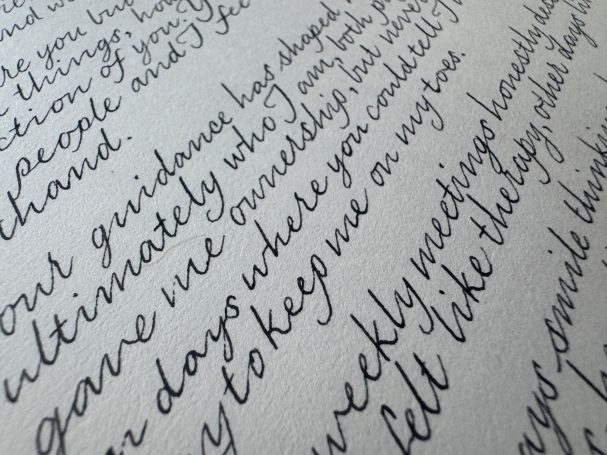 nd w
re you bu
things, ho
ction of you. y
people and I fe
chand.
our guidance has shaped
ultimately who I am, both p
gave me ownership, but never
days where you could tell I
to keep me on my toes.
weekly meetings honestly
felt like therapy, other days
smile thinking